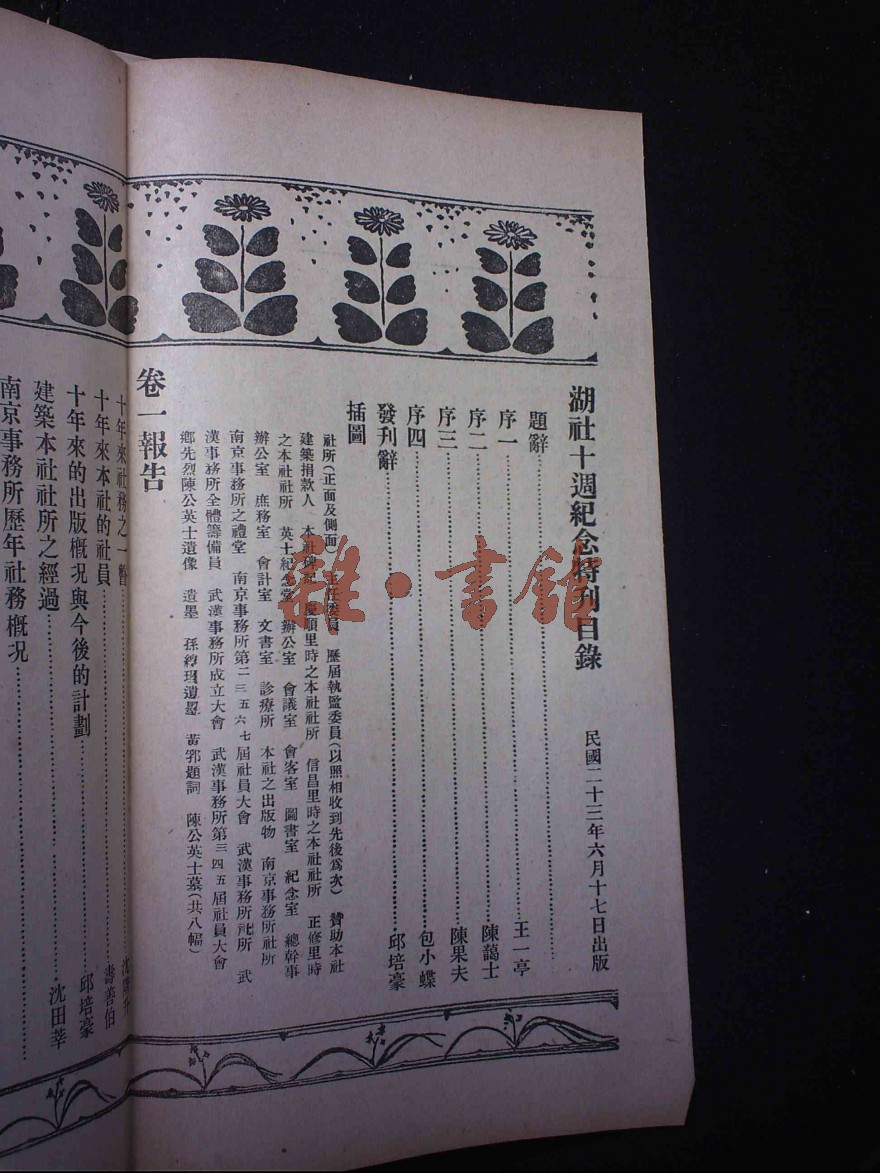 湖社十週紀念特刊目錄
民國二十三年六月十七日出版
題辭
序一 王一亭
序二 陳藹士
序三 陳果夫
序四 包小蝶
發刊辭 邱培豪
插圖
社所(正面及側面) 主任委員 歷屆執監委員(以照相收到先後爲次) 贊助本社
建築捐款人 本社碑記 慶順里時之本社社所 信昌里時之本社社所 正修里時
之本社社所 英士紀念堂 辦公室 會議室 會客室 圖書室 紀念室 總幹事
辦公室 庶務室 會計室 文書室 診療所 本社之出版物 南京事務所社所
南京事務所之禮堂 南京事務所第二三五六七屆社員大會 武漢事務所社所 武
漢事務所全體籌備員 武漢事務所成立大會 武漢事務所第三四五屆社員大會
鄉先烈陳公英士遺像 遺墨 孫 遺墨 黃郛題詞 陳公英士墓(共八幅)
卷一報告
十年來社務之一瞥 沈
十年來本社的社員 壽善伯
十年來的出版概況與今後的計劃 邱培豪
建築本社社所之經過 沈田莘
南京事務所歷年社務概況
雜·書館